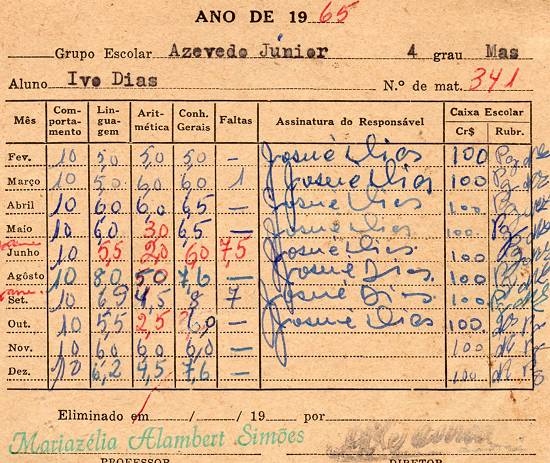 ANO DE 1965
Grupo Escolar Azevedo Júnior 4 grau Mas
Aluno Ivo Dias N.º de mat. 341
Mês Com-portamento Lin-guagem Arit-mética Conh. Gerais Faltas Assinatura do Responsável Caixa Escolar Cr$ Rubr.
Fev. 10 50 50 50 — Josué Dias 100
Março 10 50 60 60 1 Josué Dias 100
Abril 10 60 60 65 — Josué Dias 100
Maio 10 60 30 65 — Josué Dias 100
Junho 10 55 20 60 7,5 Josué Dias 100
Agôsto 10 80 50 76 — Josué Dias 100
Set. 10 4,5 8 7 Josué Dias 100
Out. 10 55 2,5 60 — Josué Dias 100
Nov. 10 60 60 60 — 100
Dez. 10 6,2 4,5 76 — 100
Eliminado em / / 19 por
Mariazélia Alambert Simões
PROFESSOR DIRETOR